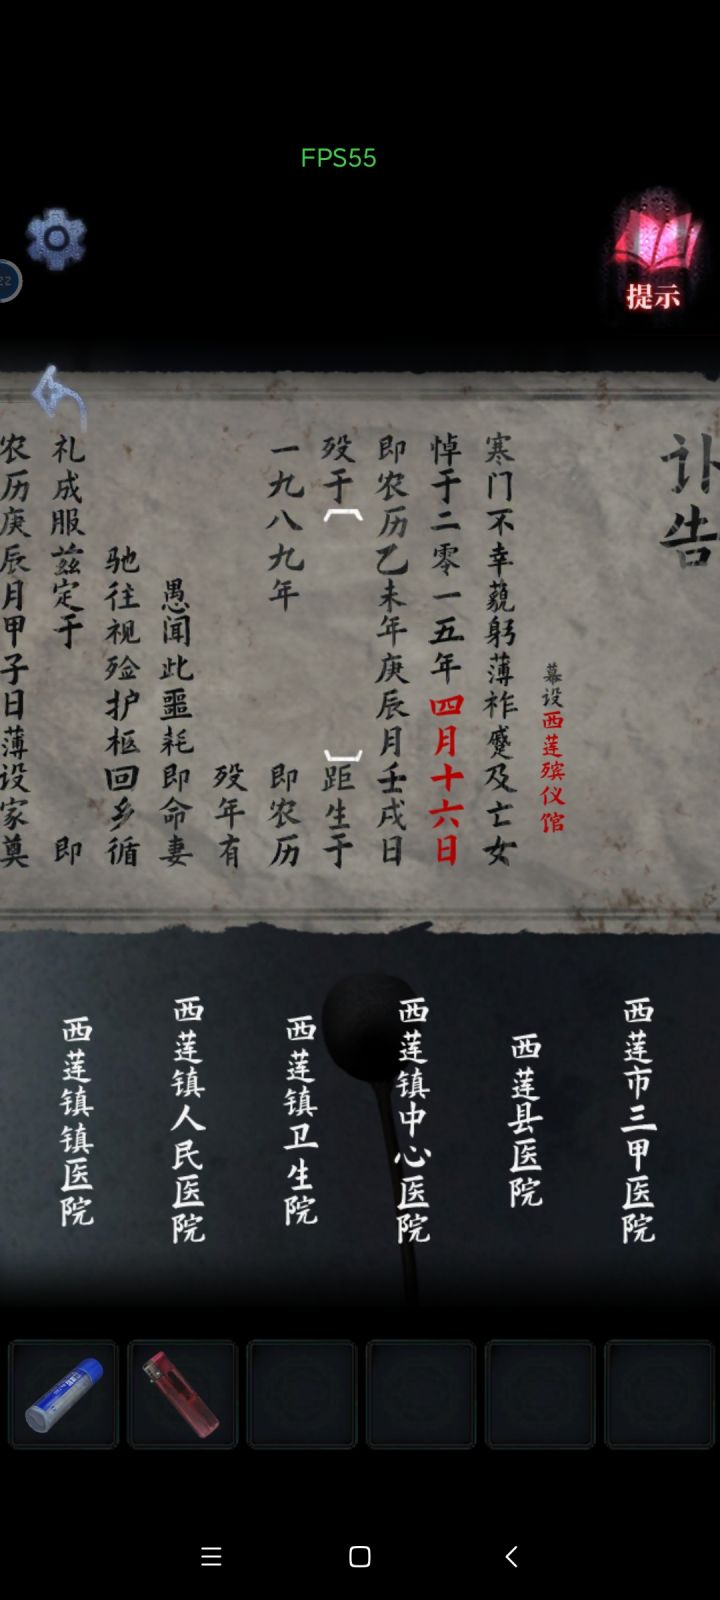 FPS55
22
提示
讣告
幕设西莲殡仪馆
寒门不幸藐躬薄祚蹙及亡女
悼于二零一五年四月十六日
即农历乙未年庚辰月壬戌日
殁于〔 〕距生于
一九八九年 即农历
殁年有
愚闻此噩耗即命妻
驰往视殓护柩回乡循
礼成服兹定于 即
农历庚辰月甲子日薄设家奠
西莲市三甲医院
西莲县医院
西莲镇中心医院
西莲镇卫生院
西莲镇人民医院
西莲镇镇医院